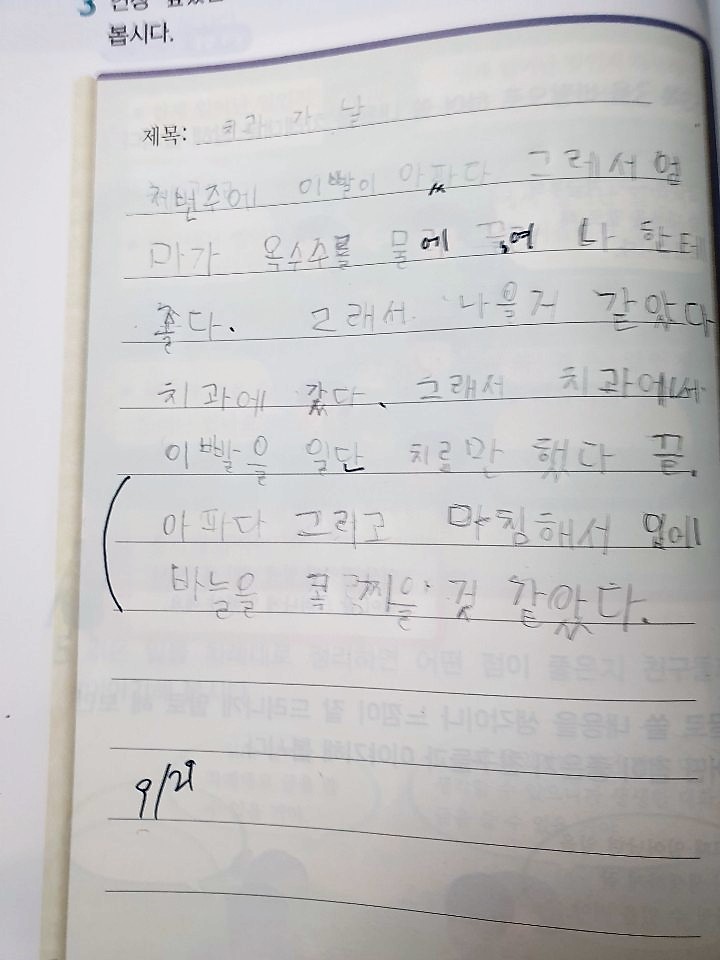 3
봅시다.
제목: 치과 가 날
저번주에 이빨이 아팠다 그레서 엄
마가 옥수수를 물에 끓여 나 한테
줬다. 그래서 나을거 같았다
치과에 갔다. 그래서 치과에서
이빨을 일단 치료만 했다 끝.
아파다 그리고 마침해서 입에
바늘을 콕 찌을 것 같았다.
9/29